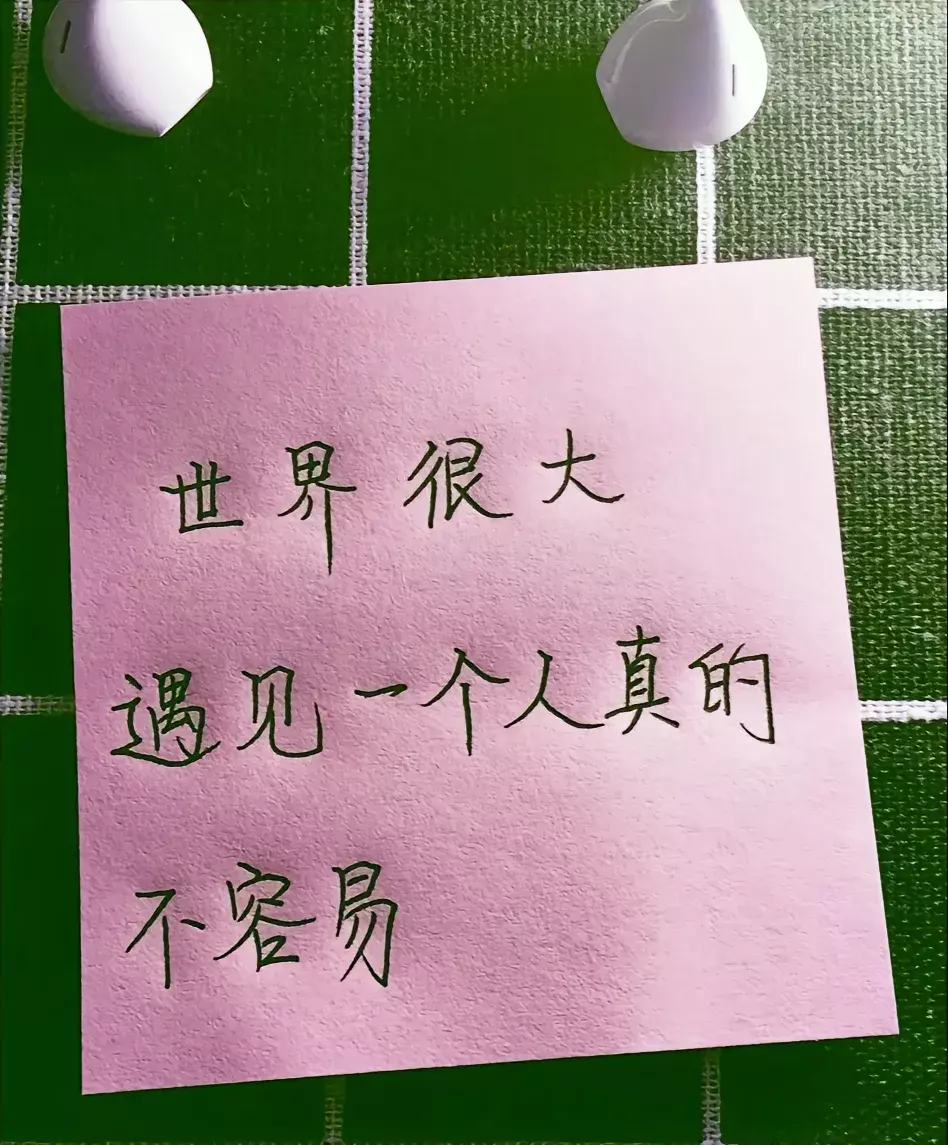 世界很大
遇见一个人真的
不容易